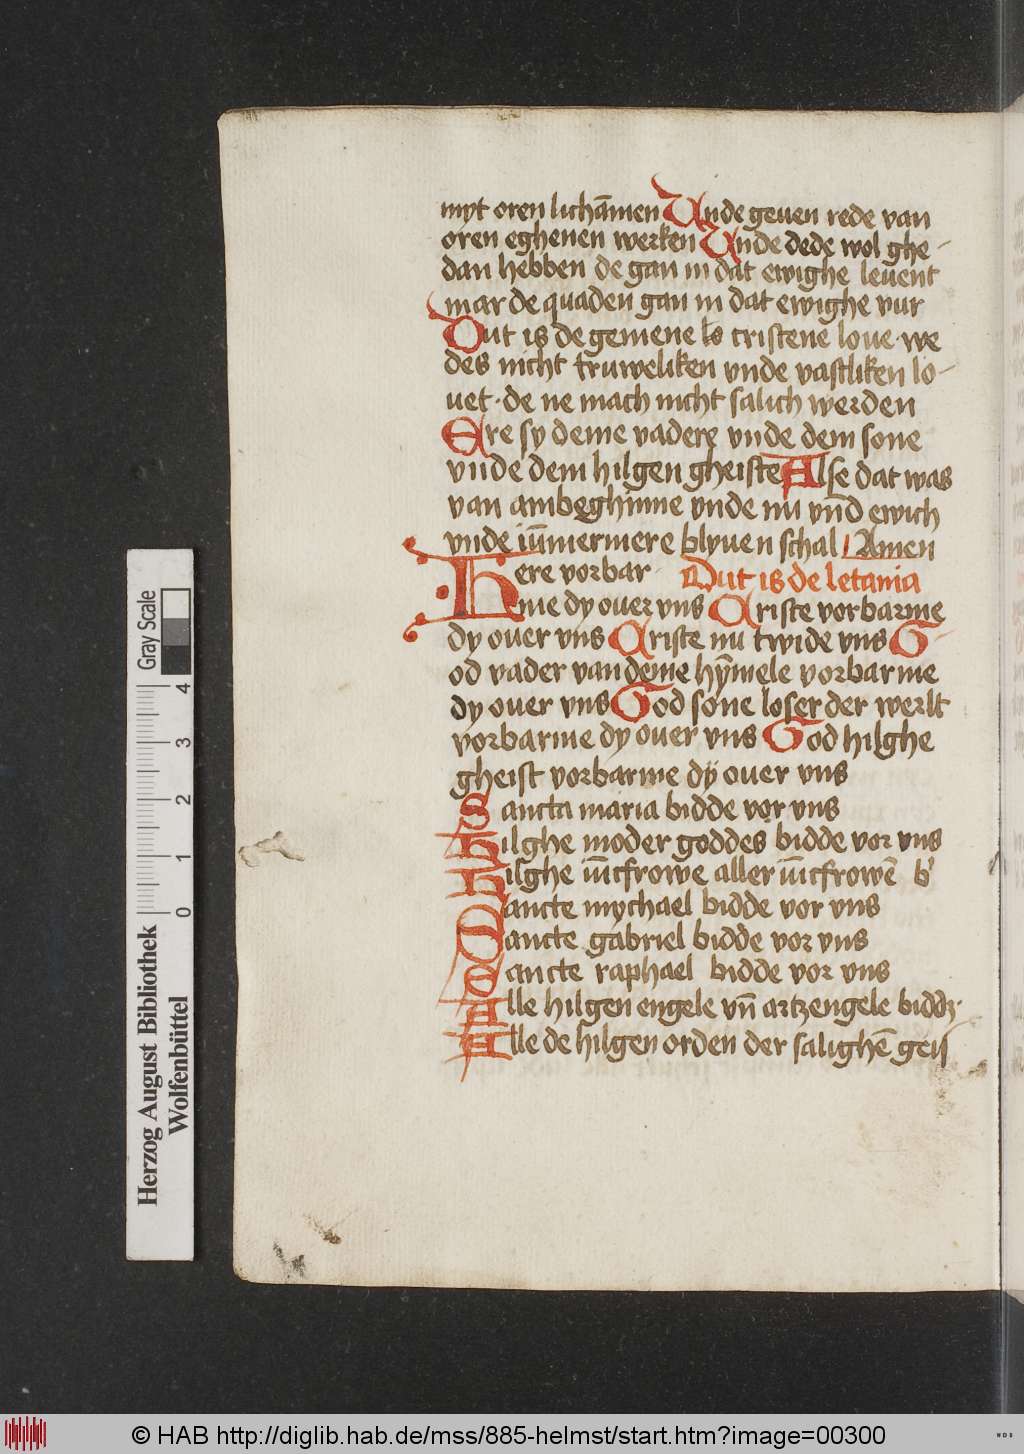 myt oren lichāmen Vnde geuen rede van
oren eghenen werken Vnde dede wol ghe-
dan hebben de gan in dat ewighe leuent
mar de quaden gan in dat ewighe vur
Dut is de gemene lo cristene loue · we
des nicht truweliken vnde vastliken lo-
uet · de ne mach nicht salich werden
Ere sy deme vadere vnde dem sone
vnde dem hilgen gheiste Alse dat was
van ambeghinne vnde nu vnd ewich
vnde iūmermere blyuen schal Amen
Here vorbar Dut is de letania
me dy ouer vns Criste vorbarme
dy ouer vns Criste nu twide vns G
od vader van deme hȳmele vorbarme
dy ouer vns God sone loser der werlt
vorbarme dy ouer vns God hilghe
gheist vorbarme dy ouer vns
Sancta maria bidde vor vns
Hilghe moder goddes bidde vor vns
Hilghe iūcfrowe aller iūcfrowē b'
Sancte mychael bidde vor vns
Sancte gabriel bidde vor vns
Sancte raphael bidde vor vns
Alle hilgen engele vn̄ artzengele bidd
Alle de hilgen orden der salighē geis
Gray Scale
4 3 2 1 0
Herzog August Bibliothek
Wolfenbüttel
© HAB http://diglib.hab.de/mss/885-helmst/start.htm?image=00300